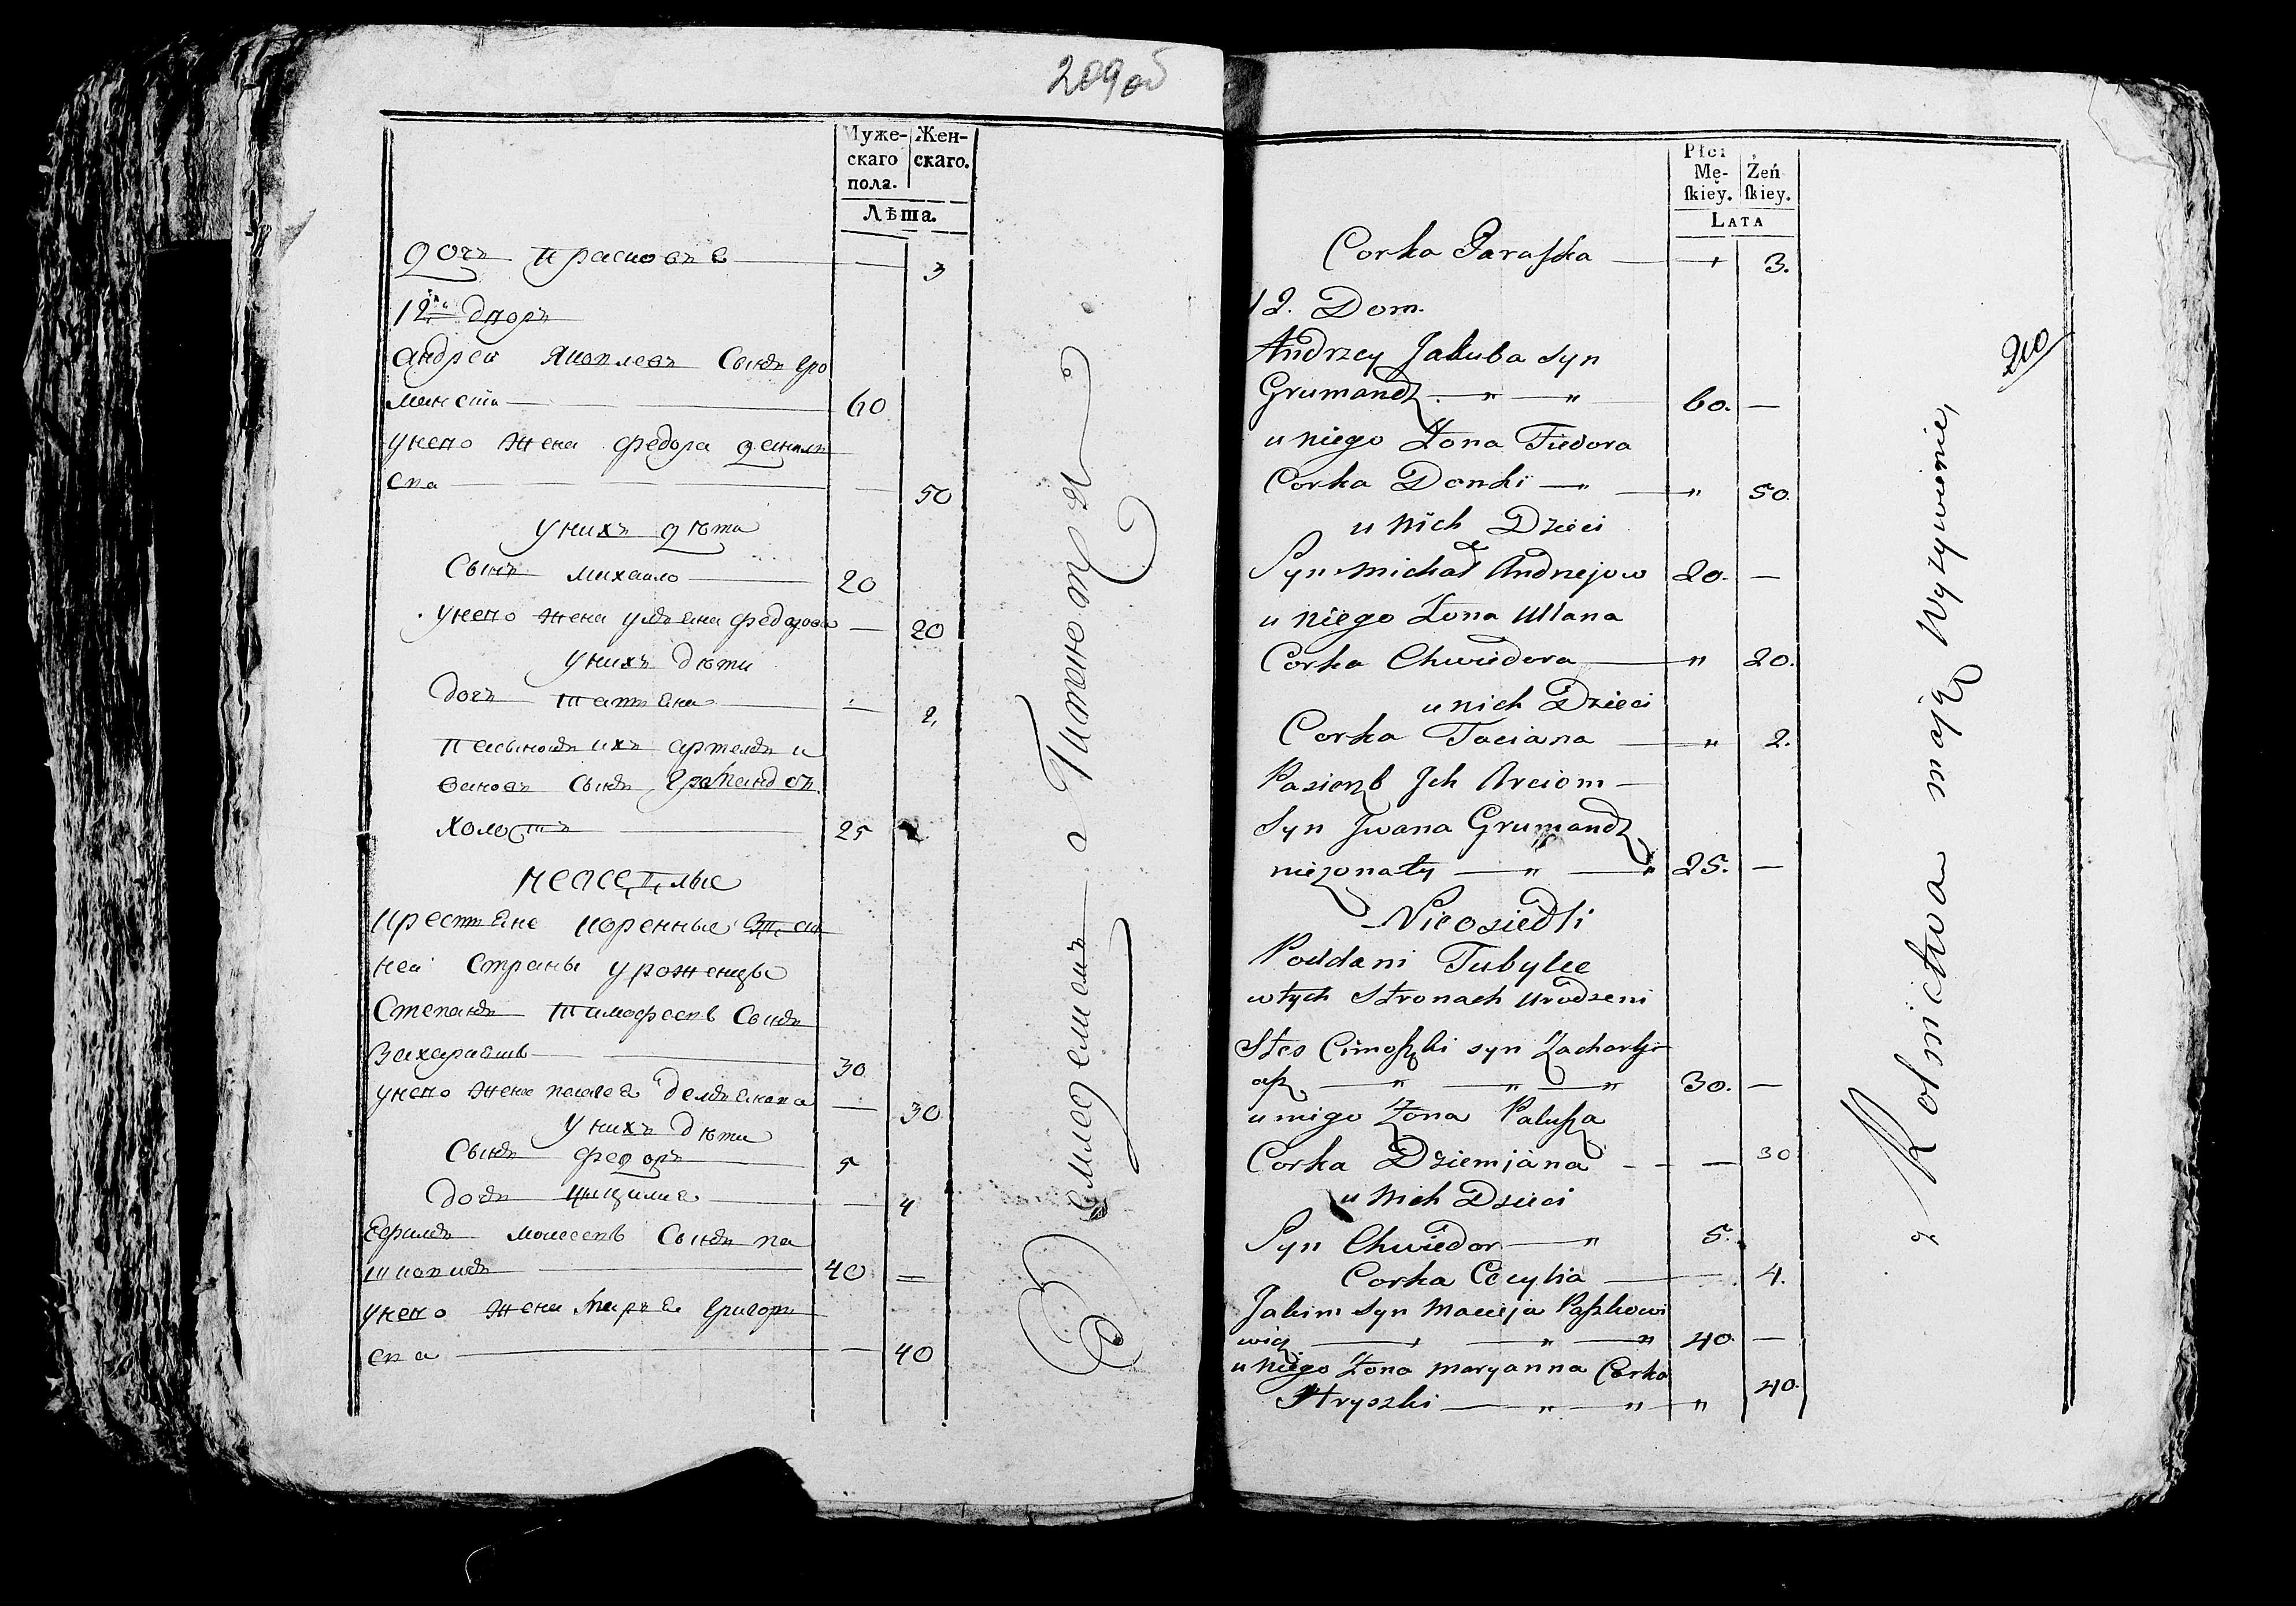 209об
Муже-
скаго
пола.
Жен-
скаго.
Лѣта.
дочь Прасковея — 3
12й дворъ
Андрей Яковлевъ сынъ Гро
мансть — 60
у него жена Федора Данил
ева — 50
у нихъ дѣти
Сынъ Михайло — 20
у него жена Ульяна Федорова — 20
у нихъ дѣти
дочь Татьяна — 2
пасынокъ ихъ Артемъ и
вановъ сынъ Громандзъ
холостъ — 25
неоседлые
крестьяне коренные
ней страны уроженцы
Степанъ Тимофеевъ сынъ
Захаряшъ — 30
у него жена Пелагея Демьянова — 30
у нихъ дѣти
Сынъ Федоръ — 5
дочь Цицилия — 4
Ефимъ Моисеевъ сынъ Па
шковичъ — 40
у него жена Марья Григорь
ева — 40
Земледелиемъ Питаются
Płci
Mę-
skiey.
Żeń
skiey.
LATA
Corka Paraska — 3.
12. Dom.
Andrzey Jakuba syn
Grumandz — 60. —
u niego Żona Fiedora
Corka Danki — 50.
u Nich Dzieci
Syn Michał Andrzejow 20. —
u Niego Żona Ullana
Corka Chwiedora — 20.
u nich Dzieci
Corka Taciana — 2.
Pasierzb Jch Arciom —
Syn Jwana Grumandz
nieżonaty — 25. —
Nieosiedli
Poddani Tubylce
w tych Stronach Urodzeni
Stes Cimoszki syn Zacharyi
asz — 30. —
u niego Żona Palusza
Corka Dziemjana — 30
u Nich Dzieci
Syn Chwiedor — 5.
Corka Cecylia — 4.
Jakim Syn Macieja Paszkowi
wicz — 40. —
u Niego Żona Maryanna Corka
Hryszki — 40.
z Rolnictwa mają Wyżywienie,
210